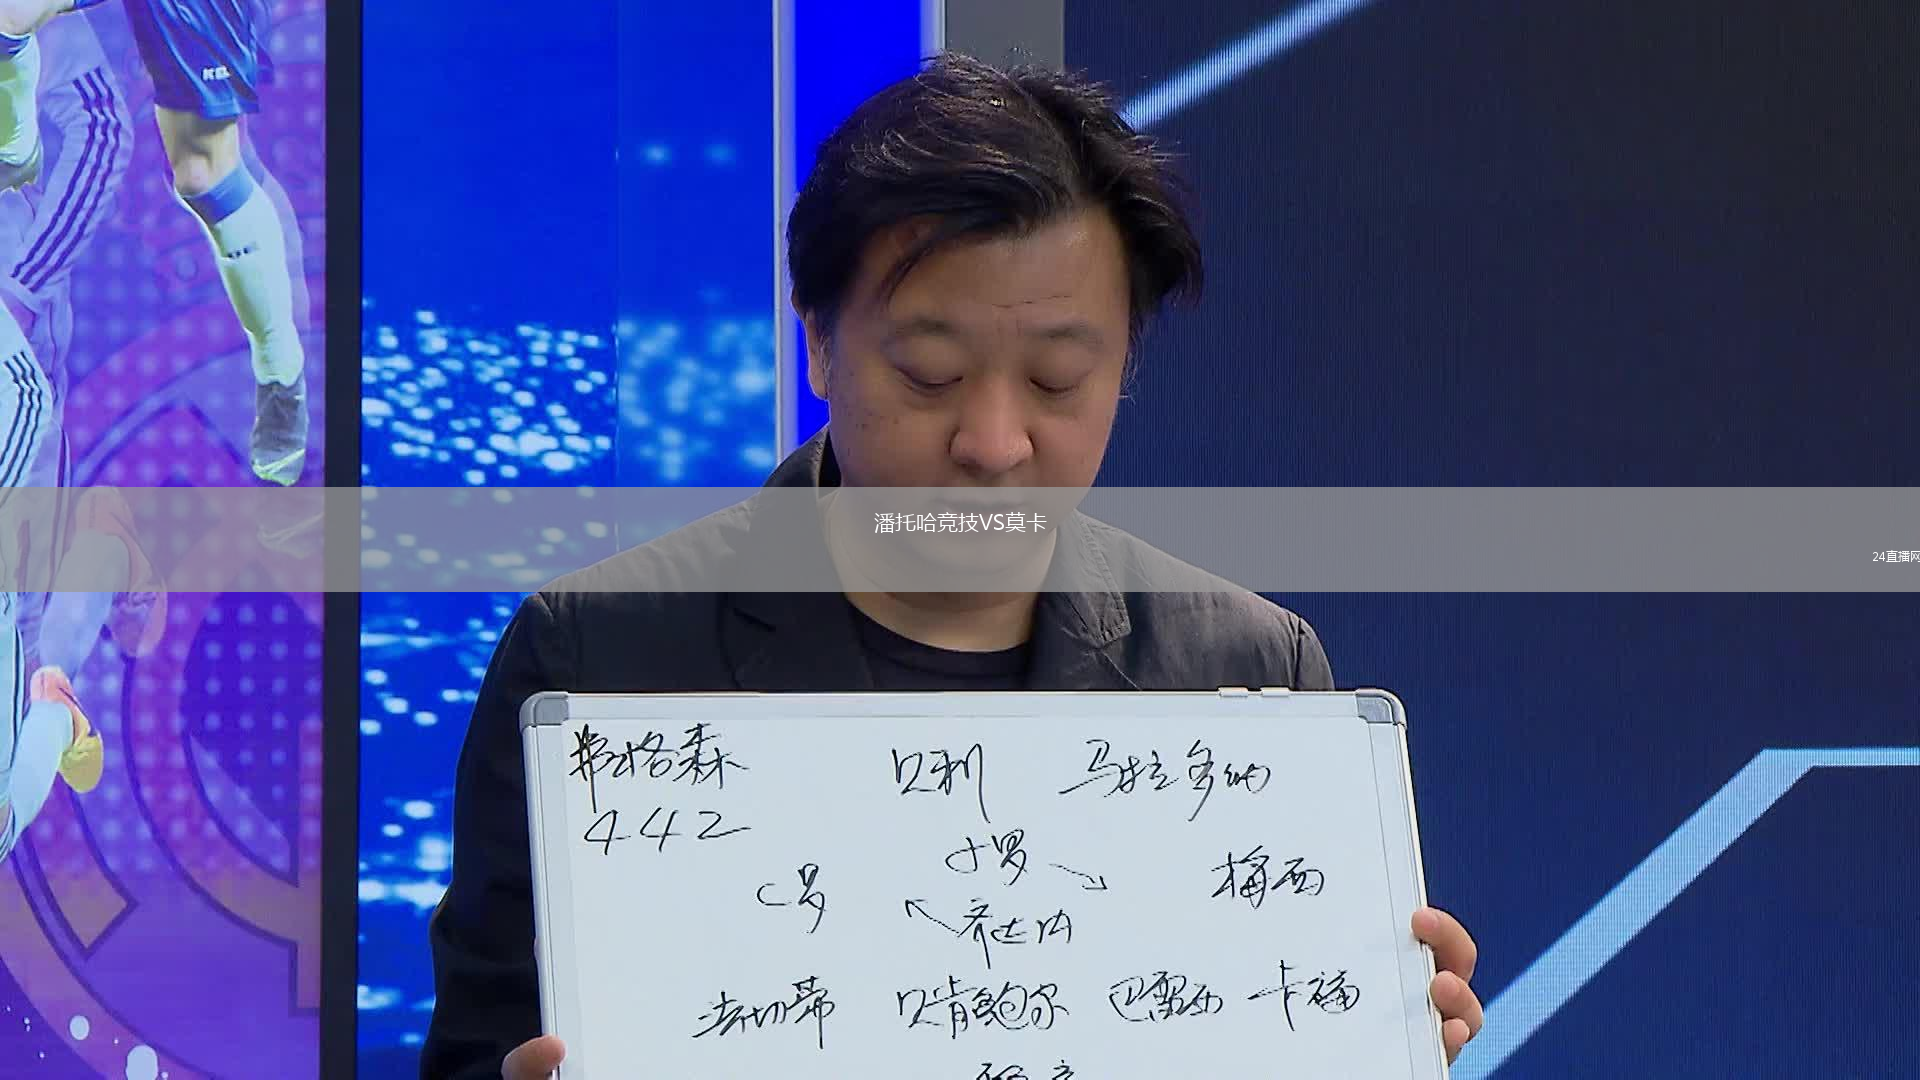 潘托哈竞技VS莫卡
24直播网
弗格森 贝利 马拉多纳
442
小罗
C罗 梅西
齐达内
法切蒂 贝肯鲍尔 巴雷西 卡福